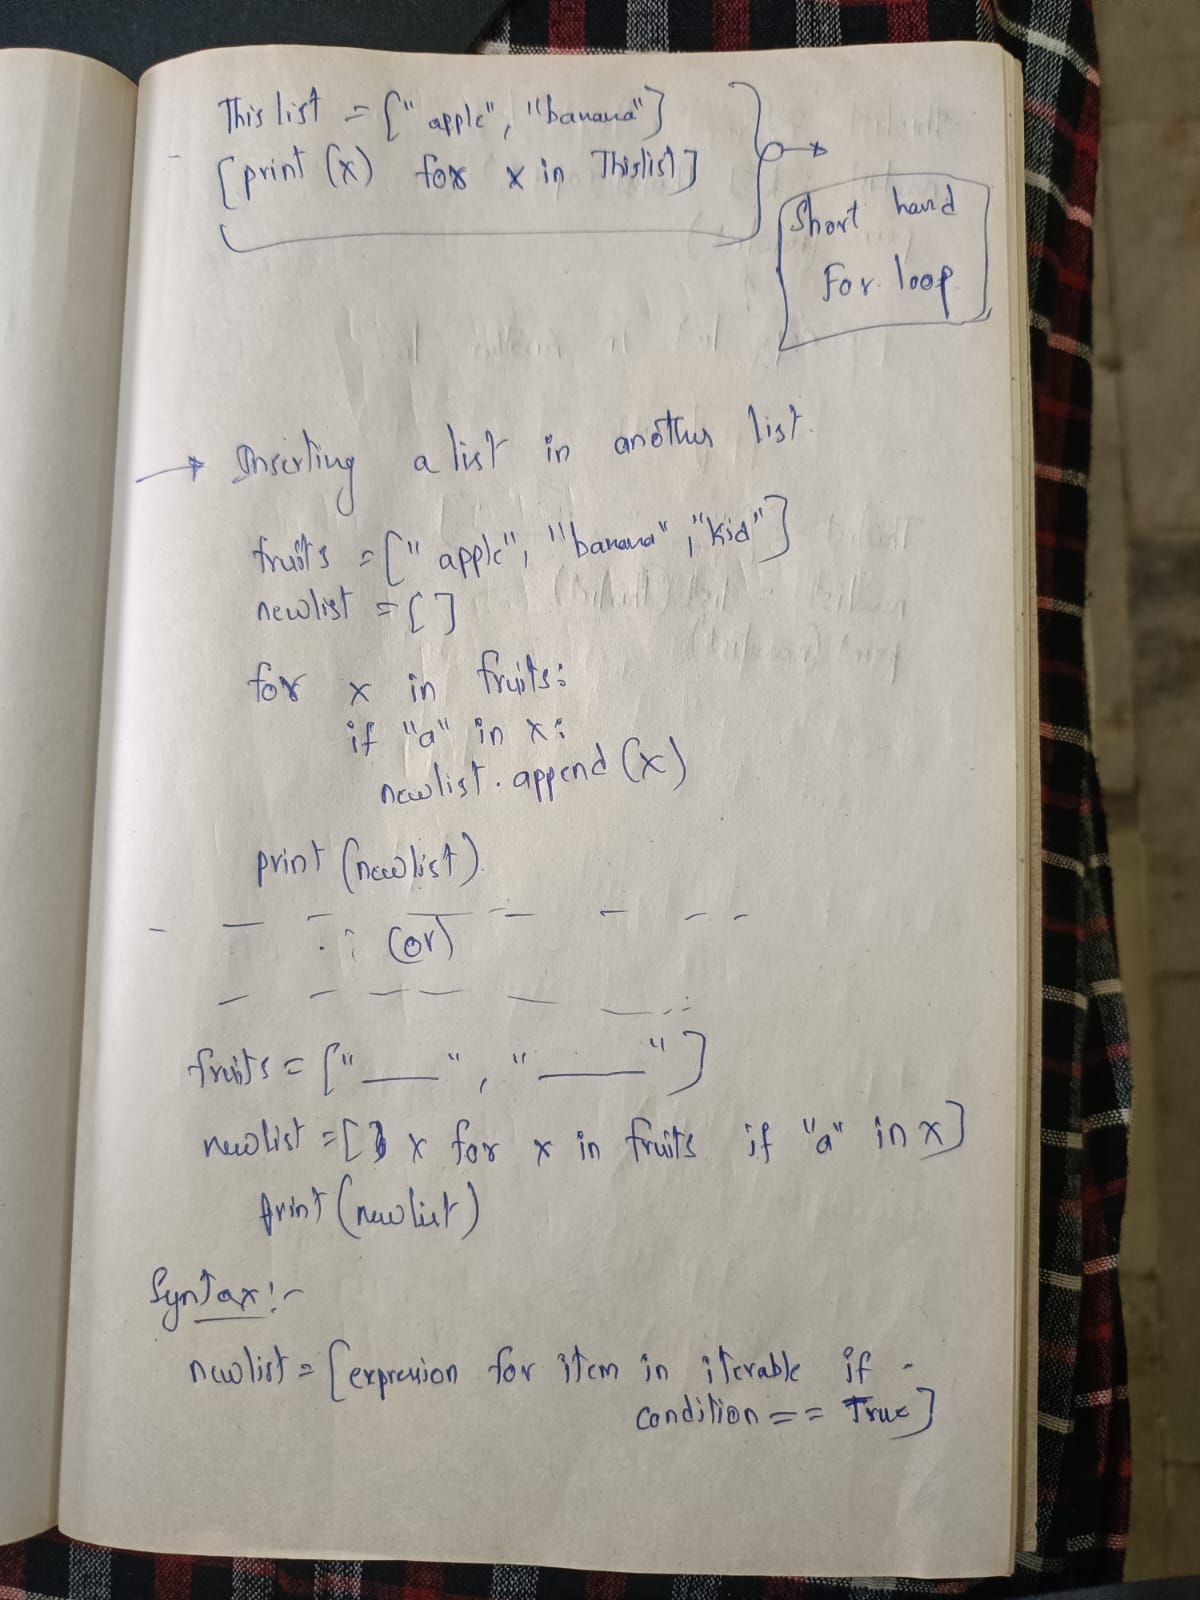 This list = ["apple", "banana"]
[print (x) for x in Thislist]
Short hand
For loop
→ Inserting a list in another list.
fruits = ["apple", "banana", "kid"]
newlist = []
for x in fruits:
if "a" in x:
newlist.append(x)
print (newlist)
(or)
fruits = ["___", "___"]
newlist = [ x for x in fruits if "a" in x]
print (newlist)
Syntax:-
newlist = [expression for item in iterable if
condition == True]